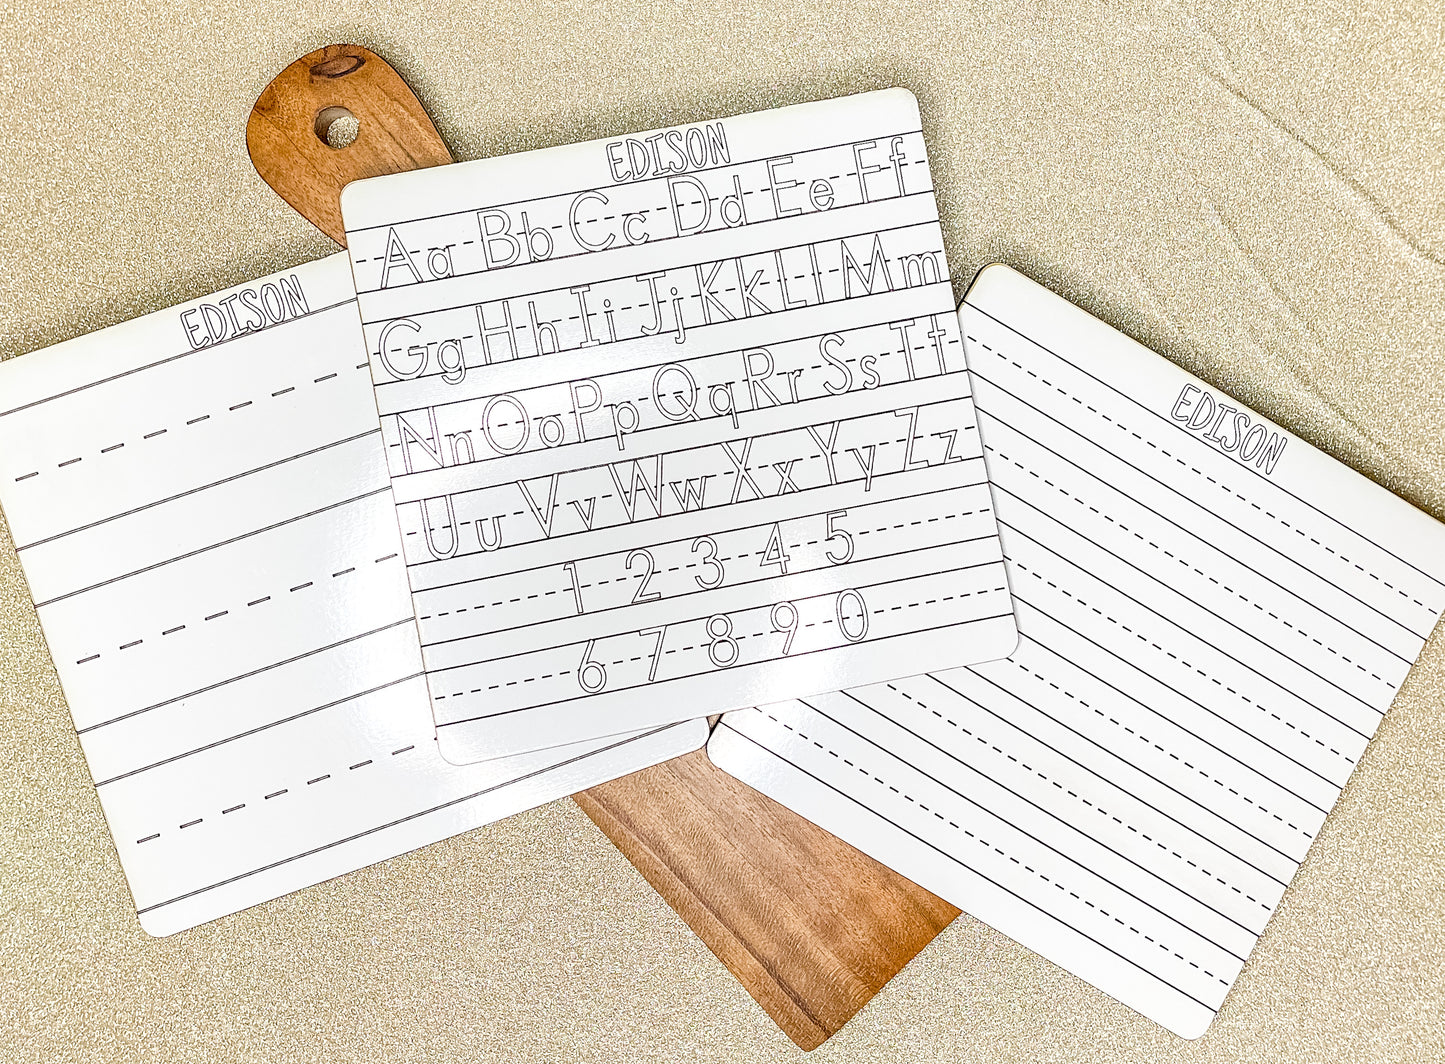 EDISON
EDISON
Aa Bb Cc Dd Ee Ff
Gg Hh Ii Jj Kk Ll Mm
Nn Oo Pp Qq Rr Ss Tt
Uu Vv Ww Xx Yy Zz
1 2 3 4 5
6 7 8 9 0
EDISON